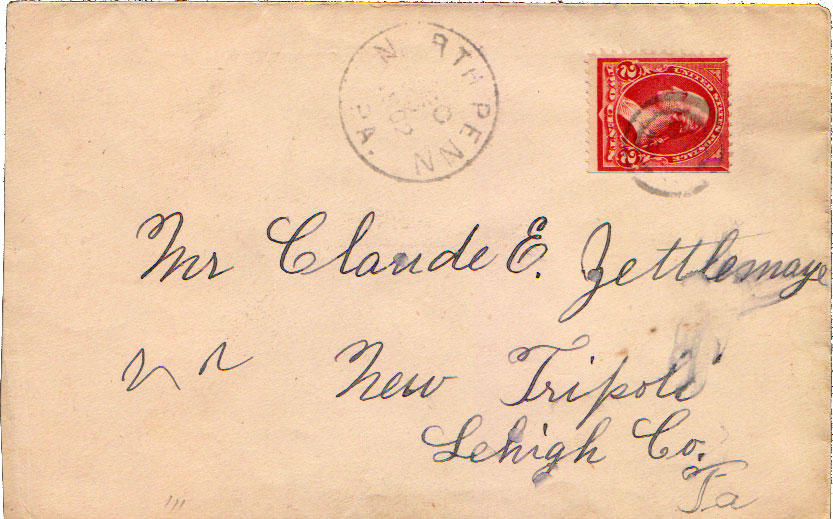 NORTH PENN
PA.
02
UNITED STATES POSTAGE
TWO CENTS
2 2
Mr Claude E. Zettlemaye
New Tripoli
Lehigh Co.
Pa